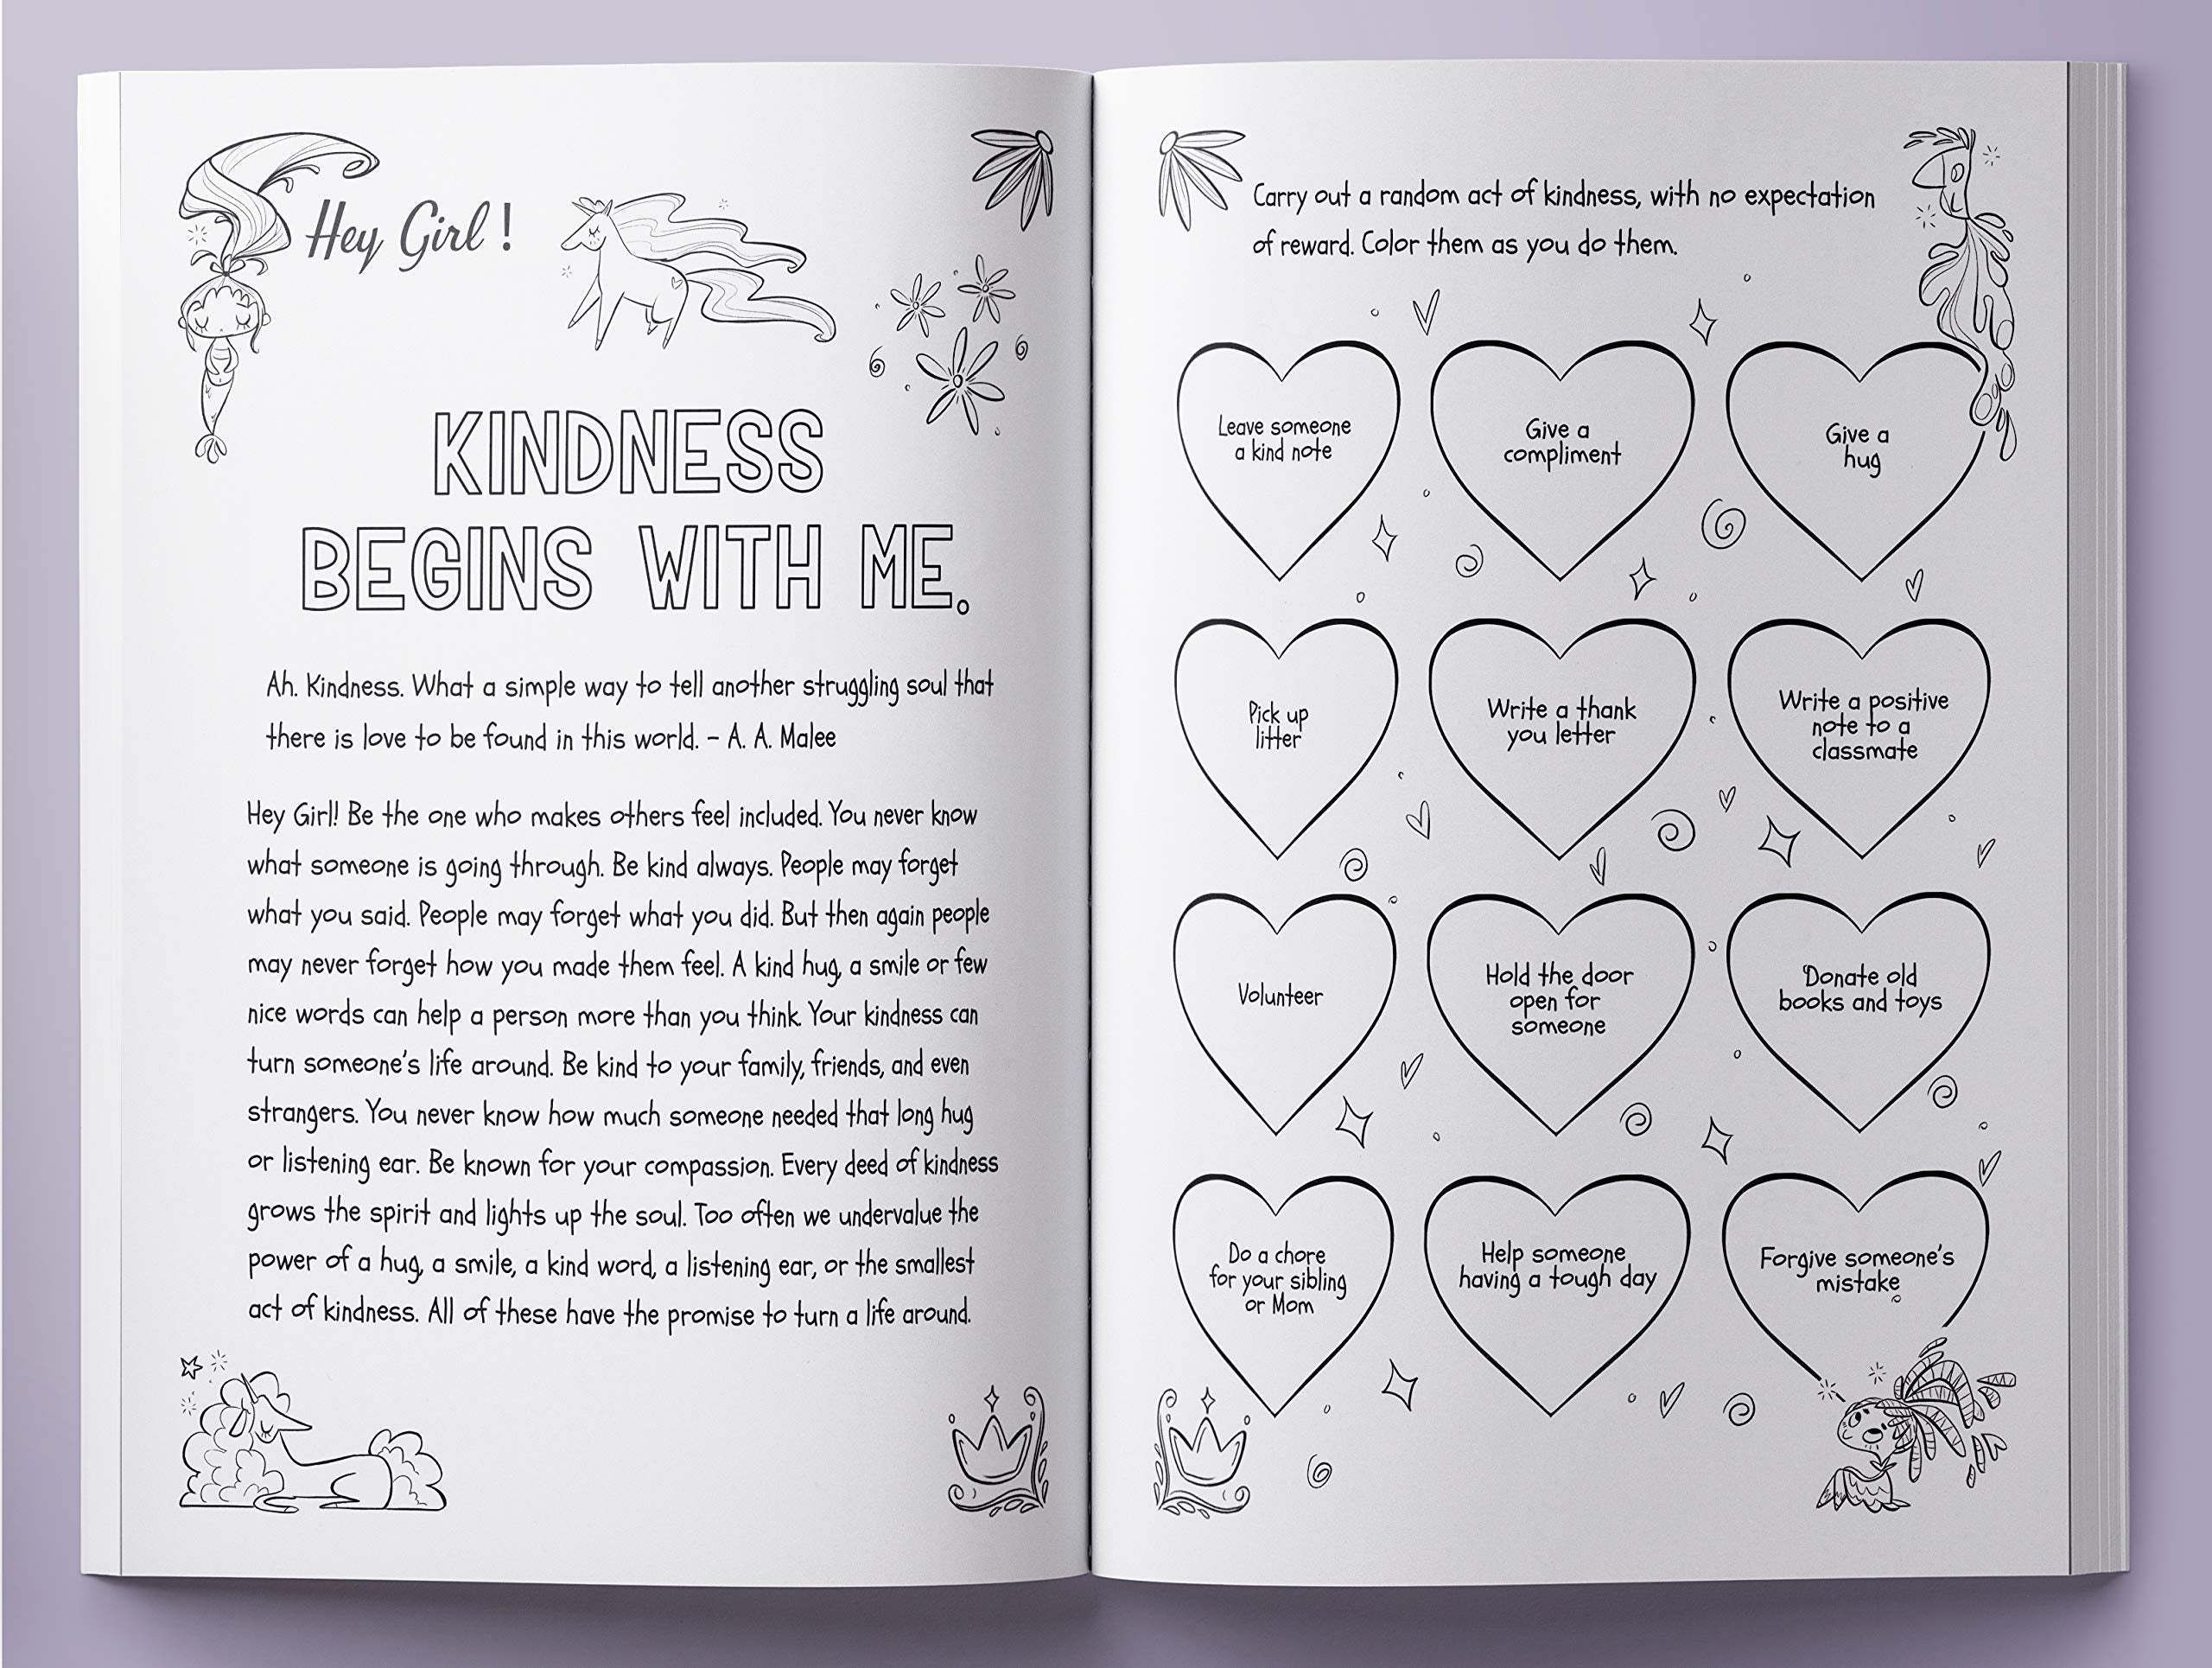 Hey Girl!
KINDNESS
BEGINS WITH ME.
Ah. Kindness. What a simple way to tell another struggling soul that
there is love to be found in this world. – A. A. Malee
Hey Girl! Be the one who makes others feel included. You never know
what someone is going through. Be kind always. People may forget
what you said. People may forget what you did. But then again people
may never forget how you made them feel. A kind hug, a smile or few
nice words can help a person more than you think. Your kindness can
turn someone's life around. Be kind to your family, friends, and even
strangers. You never know how much someone needed that long hug
or listening ear. Be known for your compassion. Every deed of kindness
grows the spirit and lights up the soul. Too often we undervalue the
power of a hug, a smile, a kind word, a listening ear, or the smallest
act of kindness. All of these have the promise to turn a life around.
Carry out a random act of kindness, with no expectation
of reward. Color them as you do them.
Leave someone
a kind note
Give a
compliment
Give a
hug
Pick up
litter
Write a thank
you letter
Write a positive
note to a
classmate
Volunteer
Hold the door
open for
someone
Donate old
books and toys
Do a chore
for your sibling
or Mom
Help someone
having a tough day
Forgive someone's
mistake